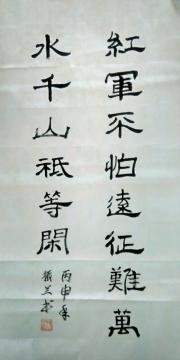 紅軍不怕遠征難萬
水千山祗等閑
丙申年